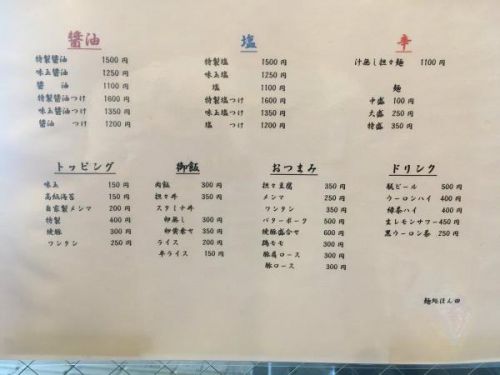 醬油
特製醬油 1500円
味玉醬油 1250円
醬油 1100円
特製醬油つけ 1600円
味玉醬油つけ 1350円
醬油 つけ 1200円
塩
特製塩 1500円
味玉塩 1250円
塩 1100円
特製塩つけ 1600円
味玉塩つけ 1350円
塩 つけ 1200円
辛
汁無し担々麺 1100円
麺
中盛 100円
大盛 250円
特盛 350円
トッピング
味玉 150円
高級海苔 150円
自家製メンマ 200円
特製 400円
焼豚 300円
ワンタン 250円
御飯
肉飯 300円
担々丼 350円
スタミナ丼
卵無し 300円
卵黄素セ 350円
ライス 200円
半ライス 150円
おつまみ
担々豆腐 350円
メンマ 250円
ワンタン 350円
バターポーク 500円
焼豚盛合セ 600円
鶏モモ 300円
豚肩ロース 300円
豚ロース 300円
ドリンク
瓶ビール 500円
ウーロンハイ 400円
緑茶ハイ 400円
生レモンサワー 450円
黒ウーロン茶 250円
麺処ほん田